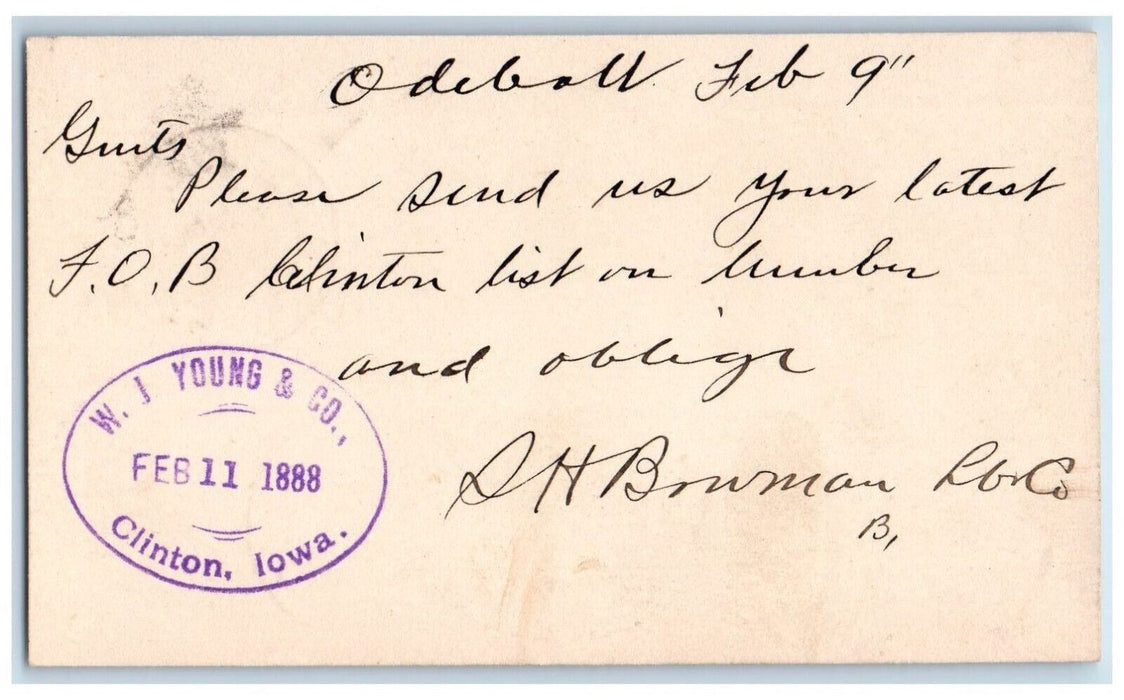 Odebolt Feb 9"
Gents
Please send us your latest
F.O.B Clinton list on lumber
and oblige
S H Bowman Lbr Co
B,
W. J YOUNG & CO.,
FEB 11 1888
Clinton, Iowa.